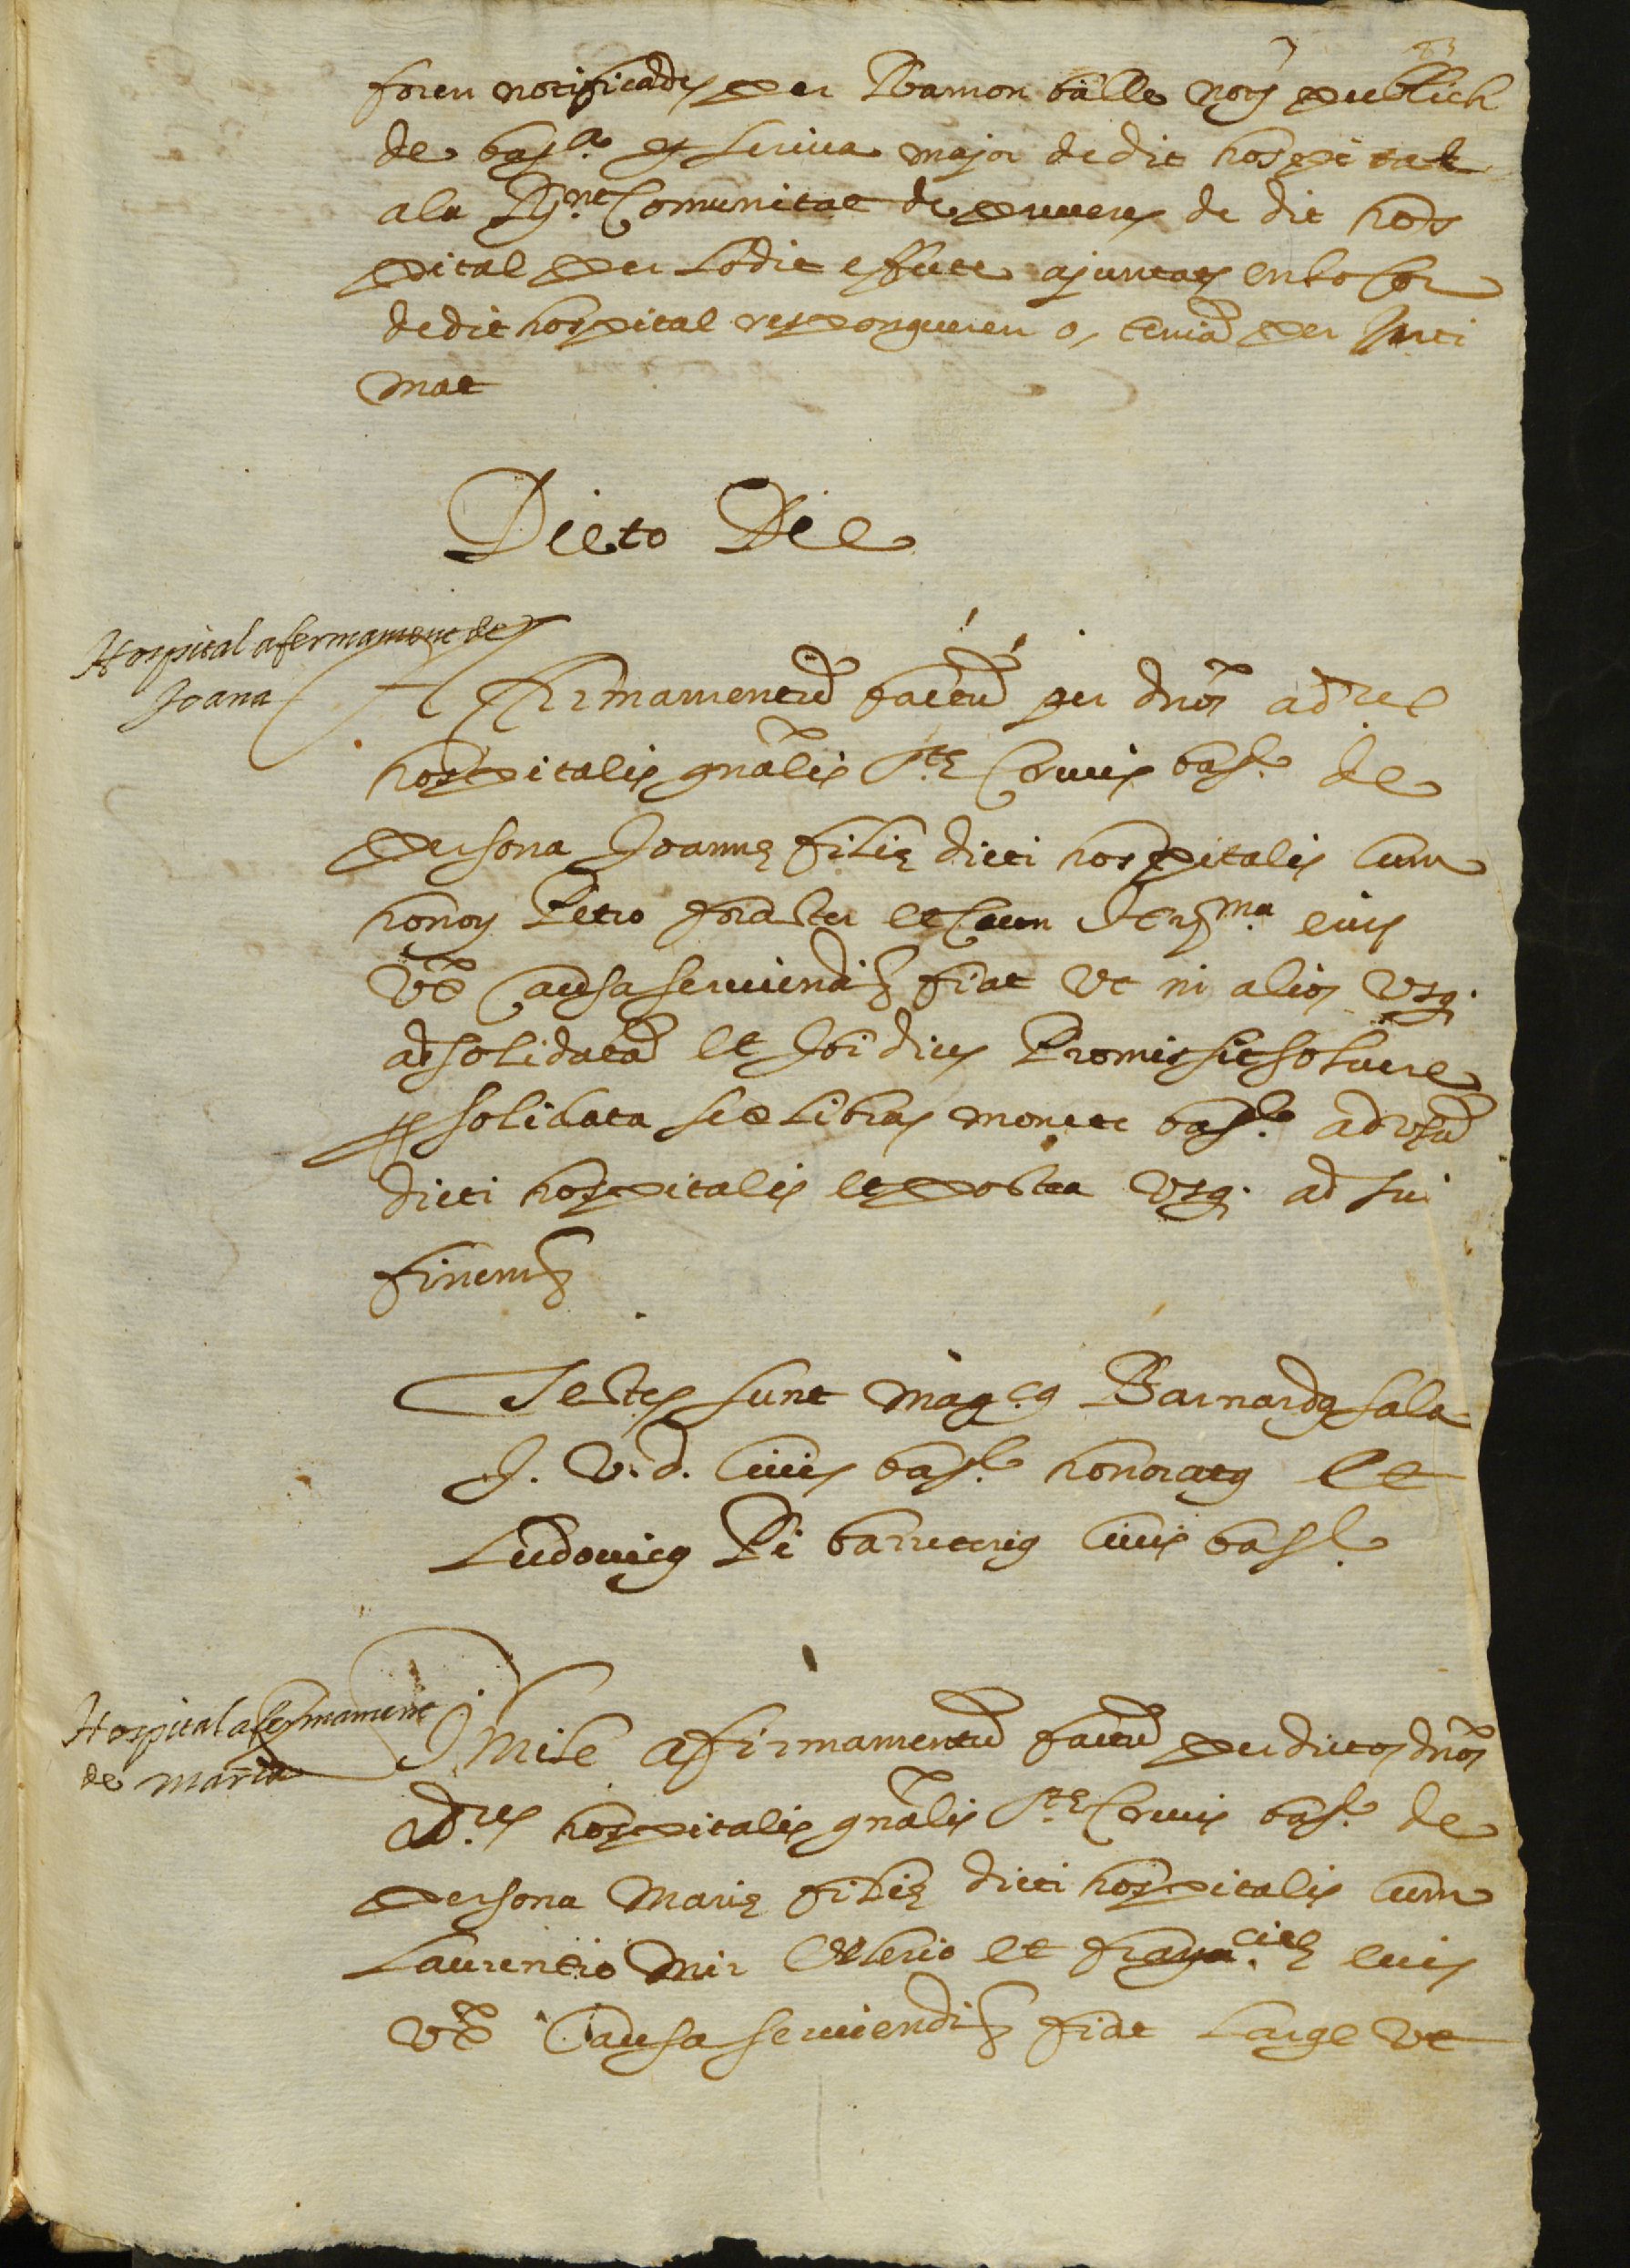 foren notificades per Ramon Balle noty publich
de bar.na y scriva major de dit hospital
ala Rnt Comunitat de preveres de dit hos
pital per lo dit effecte ajuntats en lo cor
de dit hospital respongueren o, tenia per inti
mat
Dicto Die
Hospital afermament de
Joana
Affirmamentũ factũ per dnos adres
hospitalis gnalis Ste Crucis barne de
persona Joanne filie dicti hospitalis cum
honor Petro et cum eius
vxe causa serviendi fiat vt in alios vsq.
ad solidatã et ibi dicts promissit solvere
p solidata sex libras monete barne ad vsũ
dicti hospitalis et postea vsq. ad sui
finem
Testes sunt magcus Barnardus Sala
J. V. d. civis barne honoratus et
Ludovicus Pi barreterius civis barne
Hospital afermament
de Maria
Simile afirmamentũ factũ per dictos dnos
Adres hospitalis gnalis Ste Crucis barne de
persona Marie filie dicti hospitalis cum
Laurentio Mir et francisce eius
vxe causa serviendi fiat large vt